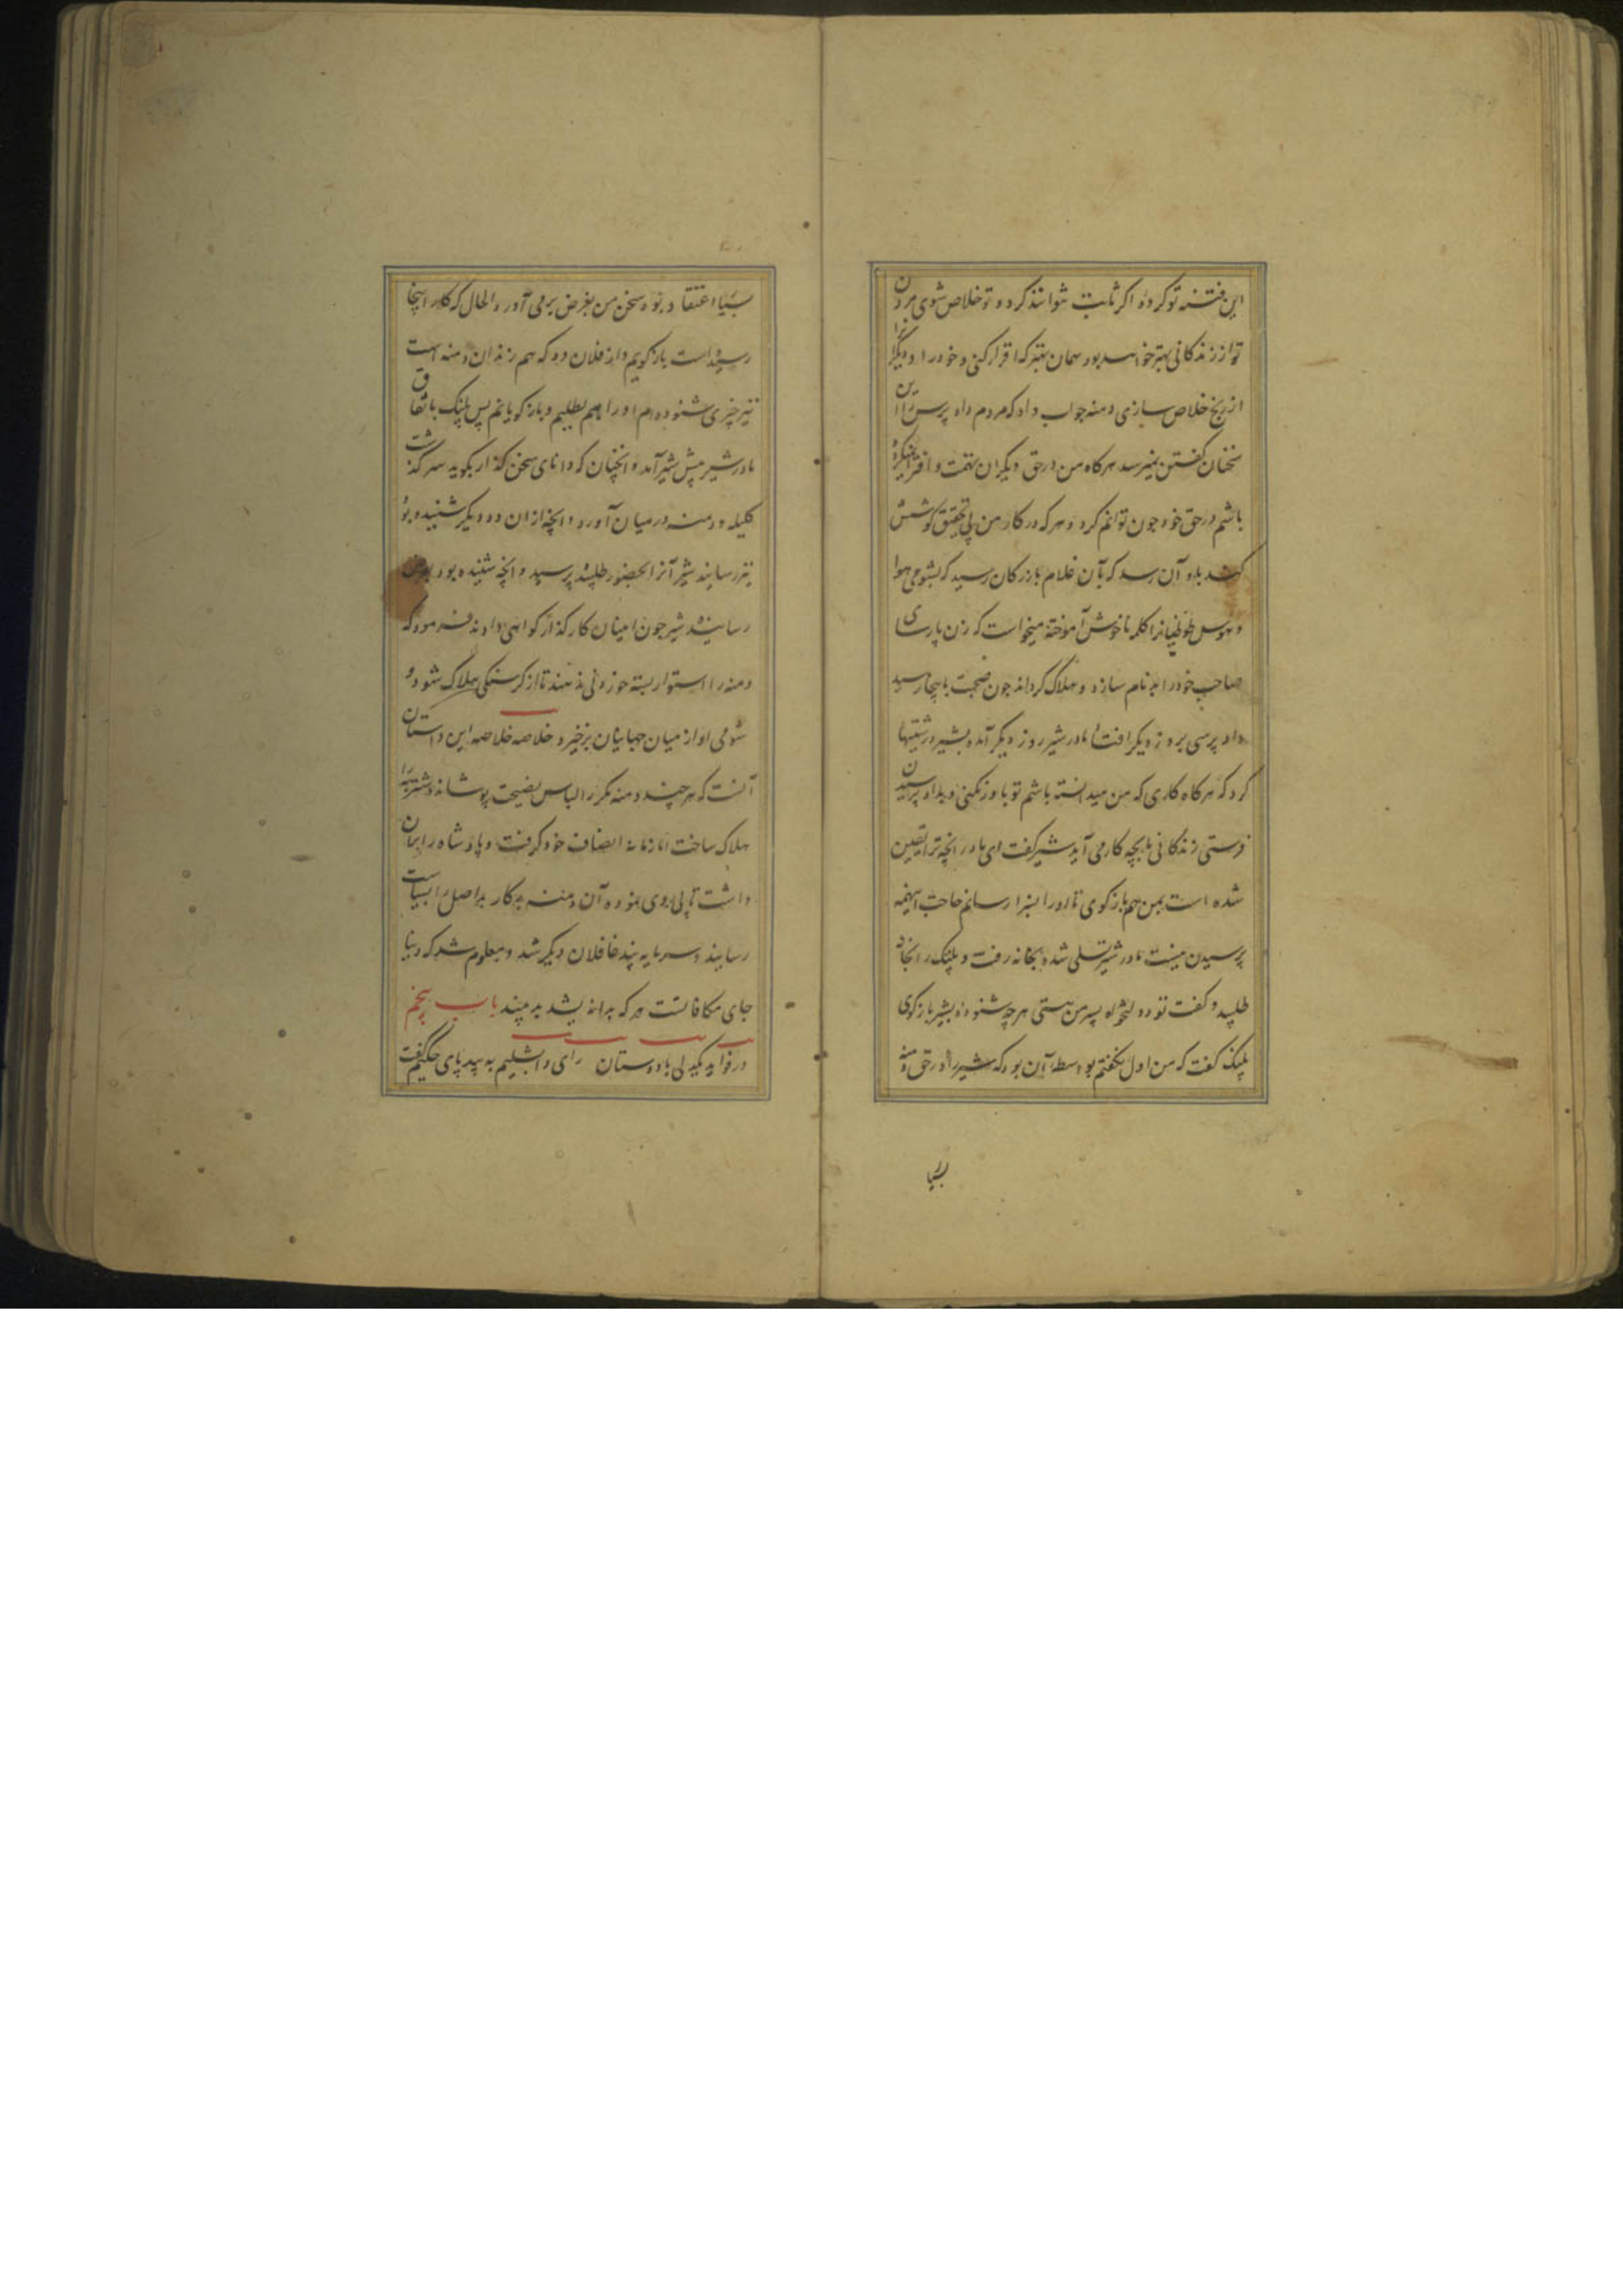 این فتنه تو کرده اکر ثابت نتوانند کرد و تو خلاص شوی مردن
تو از زندکانی بهتر خواهد بود همان بهتر که اقرار کنی و خود را و دیکرانرا
از رنج خلاص سازی دمنه جواب داد که مردم داد پرس را این
سخنان کفتن نمیرسد هرکاه من در حق دیکران تهمت و افترا نکرده
باشم در حق خود چون توانم کرد و هر که در کار من بی تحقیق کوشش
کند باو آن رسد که بآن غلام بازرکان رسید که بشومی هوا
و هوس طوطیانرا کلمه ناخوش آموخته میخواست که زن پارسای
صاحب خود را بدنام سازد و هلاک کرداند چون صحبت باینجا رسید
داد پرسی بروز دیکر افتاد مادر شیر روز دیکر آمد و بشیر درشتیها
کرد که هرکاه کاری که من میدانسته باشم تو باور نکنی و بداد پرسیدن
فرستی زندکانی ما بچه کار می آید شیر کفت ای مادر انچه ترا یقین
شده است بمن هم باز کوی تا او را بسزا رسانم حاجت اینهمه
پرسیدن نیست مادر شیر تسلی شده بخانه رفت و پلنک را نجا
طلبید و کفت تو دولتخواه پسر من هستی هر چه شنوده بشیر باز کوی
پلنک کفت که من اول نکفتم بواسطه آن بود که شیر را در حق دمنه
بسیار
بسیار اعتقاد بود و سخن من بغرض بر می آورد الحال که کار اینجا
رسیده است باز کویم و از فلان دد که هم زندان دمنه است
نیز چیزی شنوده ام او را هم بطلبیم و باز کویانیم پس پلنک باتفاق
مادر شیر پیش شیر آمد و انچنان که دانای سخن کذار بکوید سر کذشت
کلیله و دمنه در میان آورد و انچه از ان دد دیکر شنیده بود
نیز رسانید شیر آنرا بحضور طلبیده پرسید و انچه شنیده بود بعرض
رسانید شیر چون امینان کار کذار کواهی دادند فرمود که
دمنه را استوار بسته خوردنی ندهند تا از کرسنکی هلاک شود و
شومی او از میان جهانیان برخیزد خلاصه خلاصه این داستان
آنست که هر چند دمنه مکر را لباس نصیحت پوشانده شتربه را
هلاک ساخت اما زمانه انصاف خود کرفت و پادشاه را بران
داشت تا پی روی نموده آن دمنه بدکار بداصل را بسیاست
رسانید و سرمایه پند غافلان دیکر شد و معلوم شد که دنیا
جای مکافاتست هر که بد اندیشد بد بیند باب پنجم
در فواید یکدلی با دوستان رای دابشلیم به بیدپای حکیم کفت